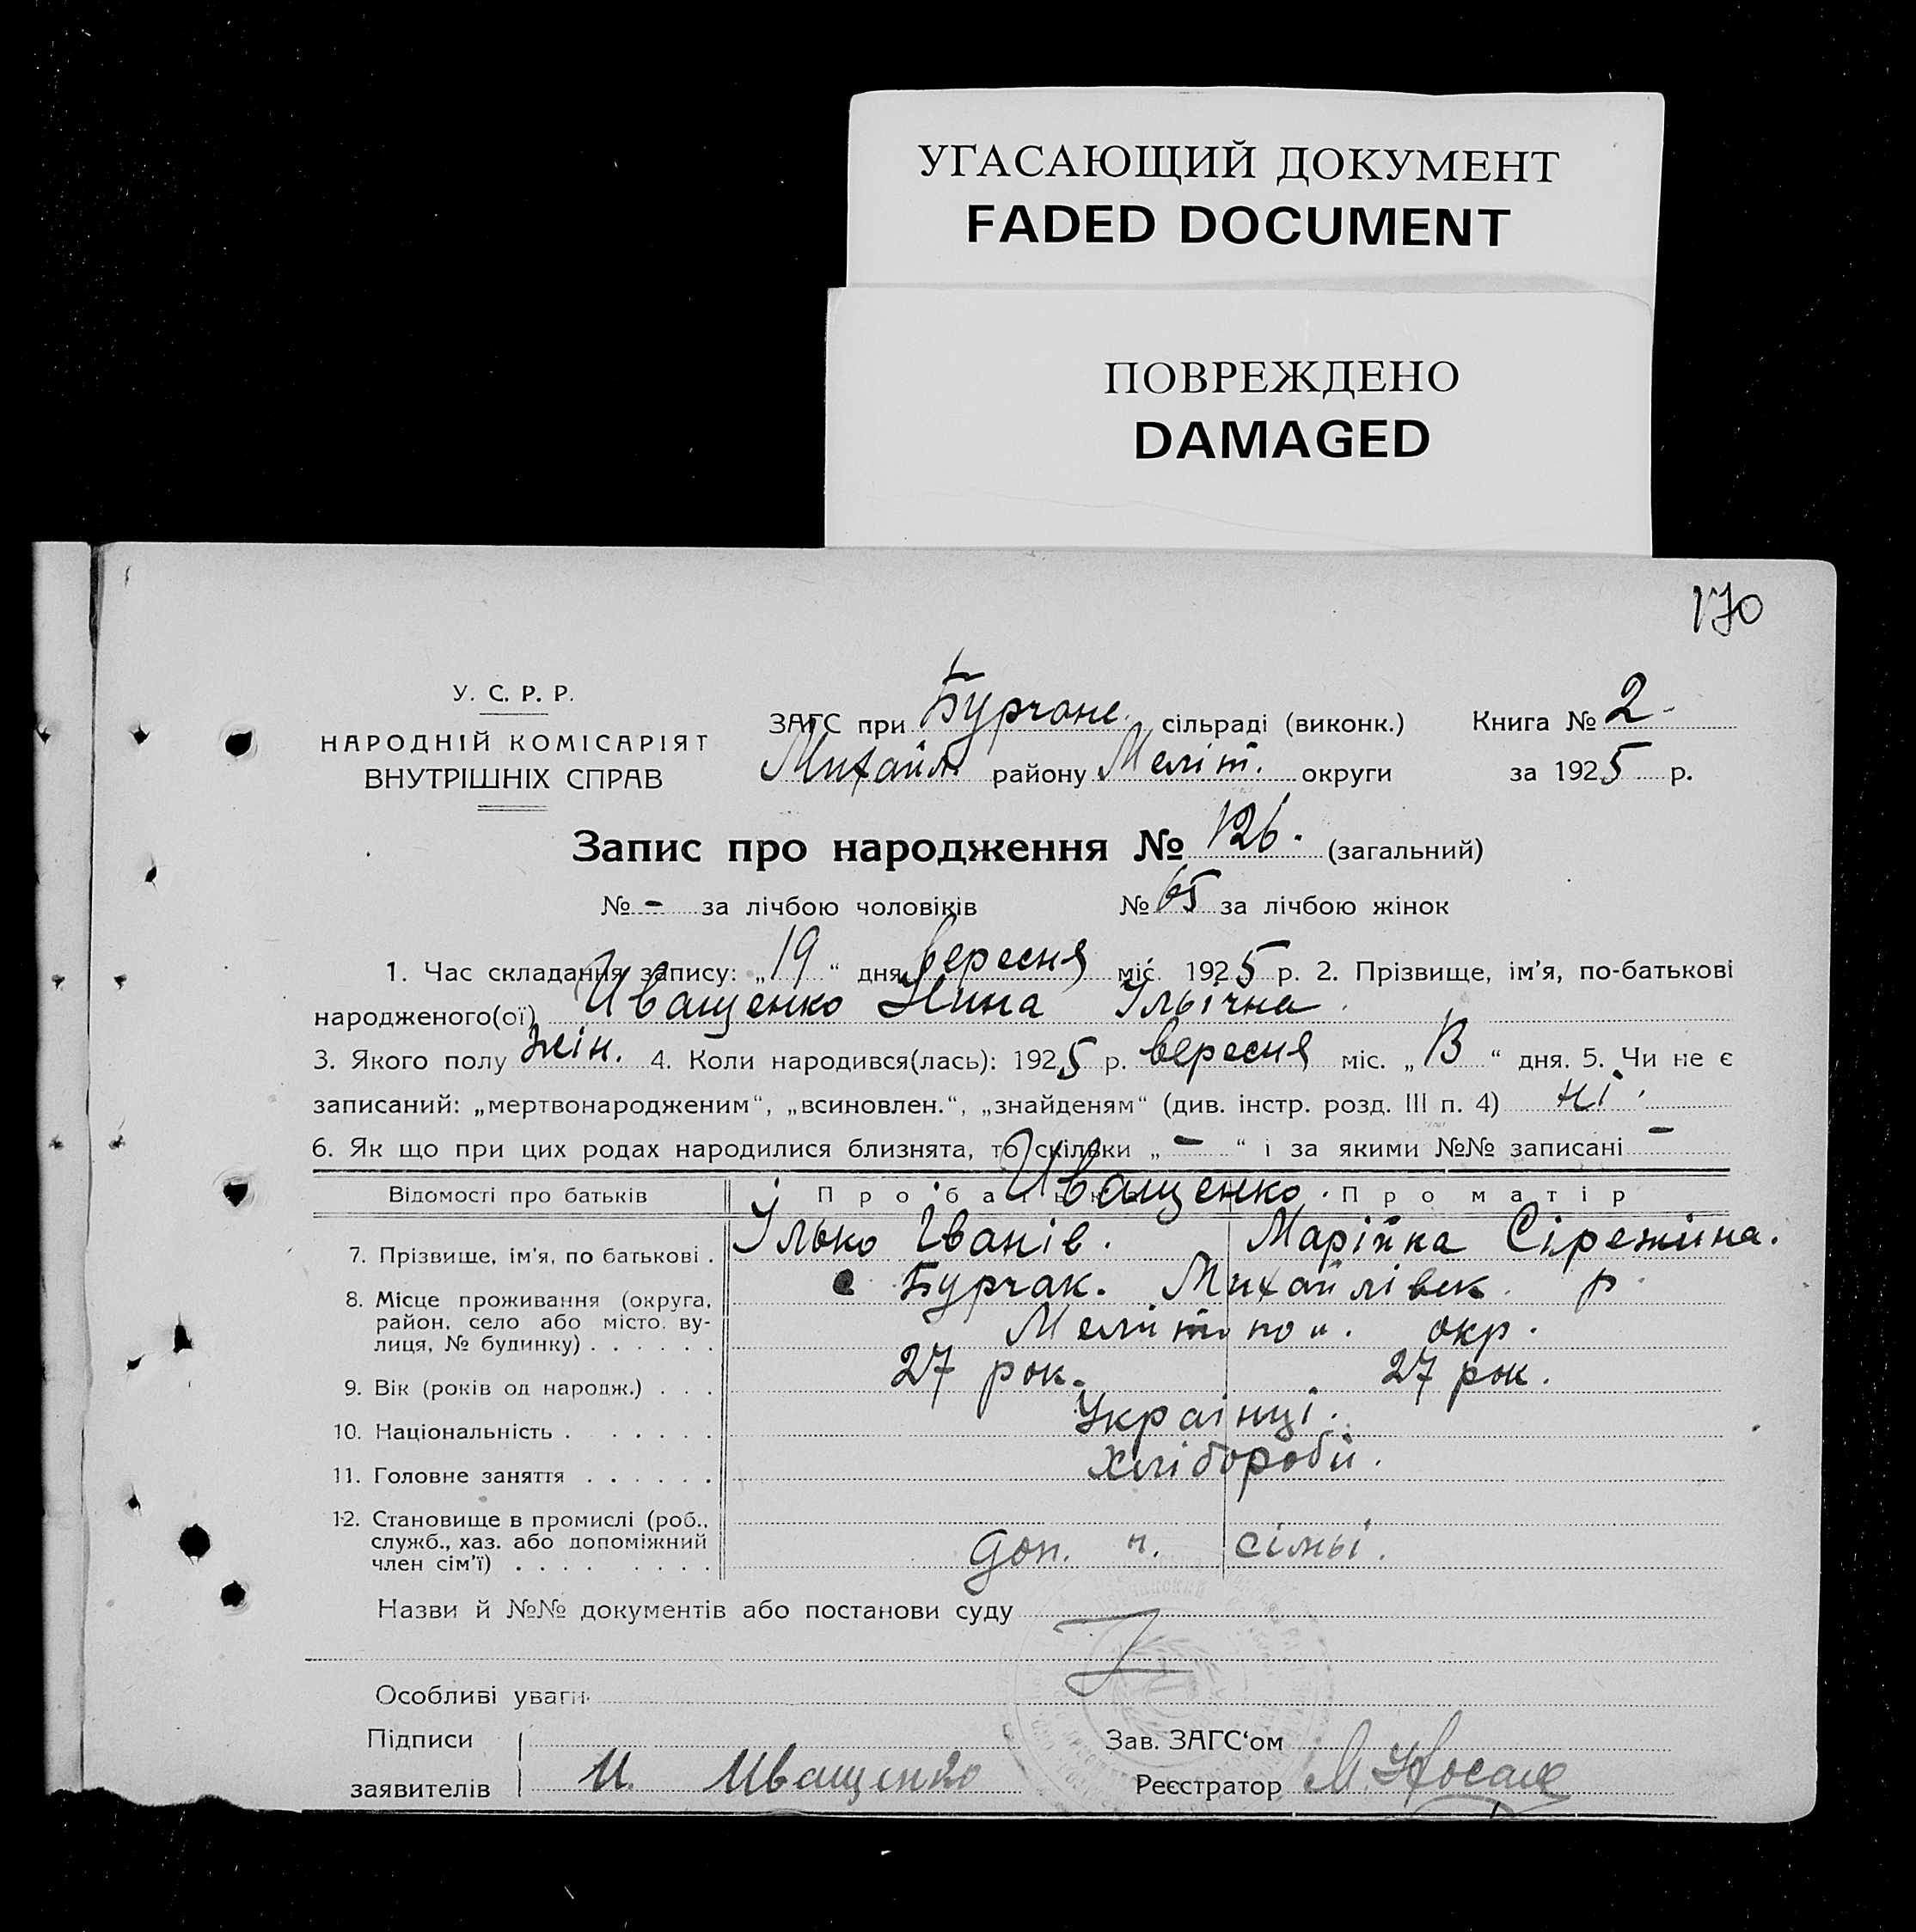 УГАСАЮЩИЙ ДОКУМЕНТ
FADED DOCUMENT
ПОВРЕЖДЕНО
DAMAGED
170
У. С. Р. Р.
НАРОДНІЙ КОМІСАРІЯТ
ВНУТРІШНІХ СПРАВ
ЗАГС при Бурчане. сільраді (виконк.) Книга № 2
Михайл. району Меліт. округи за 1925 р.
Запис про народження № 126. (загальний)
№ - за лічбою чоловіків № 65 за лічбою жінок
1. Час складання запису: „19“ дня вересня міс. 1925 р. 2. Прізвище, ім'я, по-батькові
народженого(ої) Иващенко Нина Ільічна
3. Якого полу жін. 4. Коли народився(лась): 1925 р. вересня міс. „13“ дня. 5. Чи не є
записаний: „мертвонародженим“, „всиновлен.“, „знайденям“ (див. інстр. розд. III п. 4) ні.
6. Як що при цих родах народилися близнята, то скільки „-“ і за якими №№ записані -
Відомості про батьків Про батька Иващенко. Про матір
7. Прізвище, ім'я, по батькові . Ілько Іванів. Марійка Сірежина.
8. Місце проживання (округа, с Бурчак. Михайлівек. р
район, село або місто, ву-
лиця, № будинку) . . . . . . Мелітпо окр.
9. Вік (років од народж.) . . . 27 рок. 27 рок.
10. Національність . . . . . . Українці.
11. Головне заняття . . . . . . Хлібороби.
12. Становище в промислі (роб.,
служб., хаз. або допоміжний
член сім'ї) . . . . . . . . доп. ч. сімьі.
Назви й №№ документів або постанови суду
Особливі уваги
Підписи Зав. ЗАГС'ом
заявителів И. Иващенко Реєстратор М.